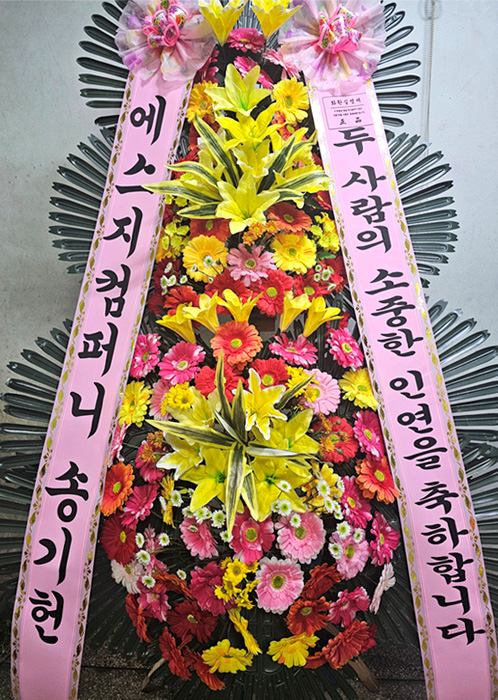 에스지컴퍼니 송기헌
화환실명제
두 사람의 소중한 인연을 축하합니다